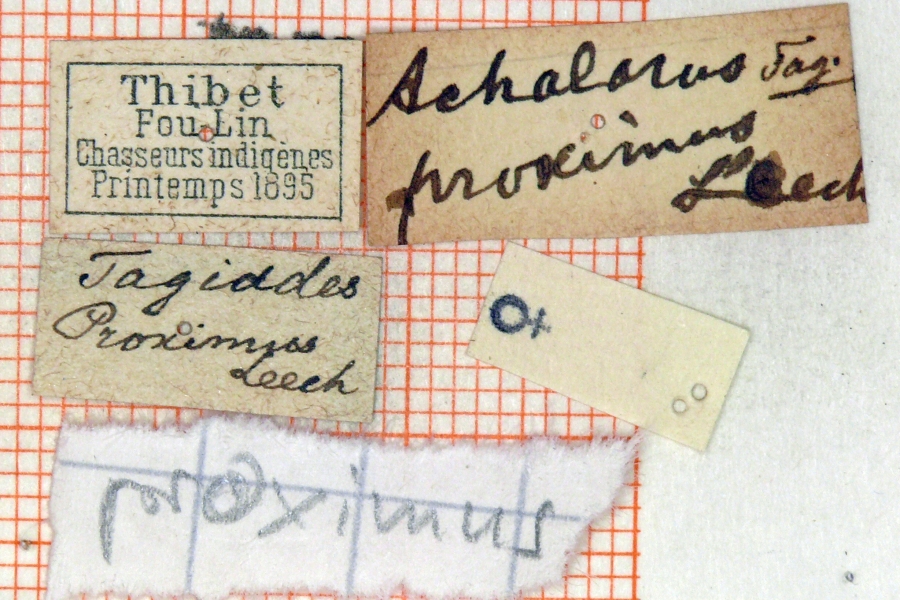 Thibet
Fou Lin
Chasseurs indigènes
Printemps 1895
Achalarus Tag.
proximus
Leech
Tagiades
Proximus
Leech
♀
proximus